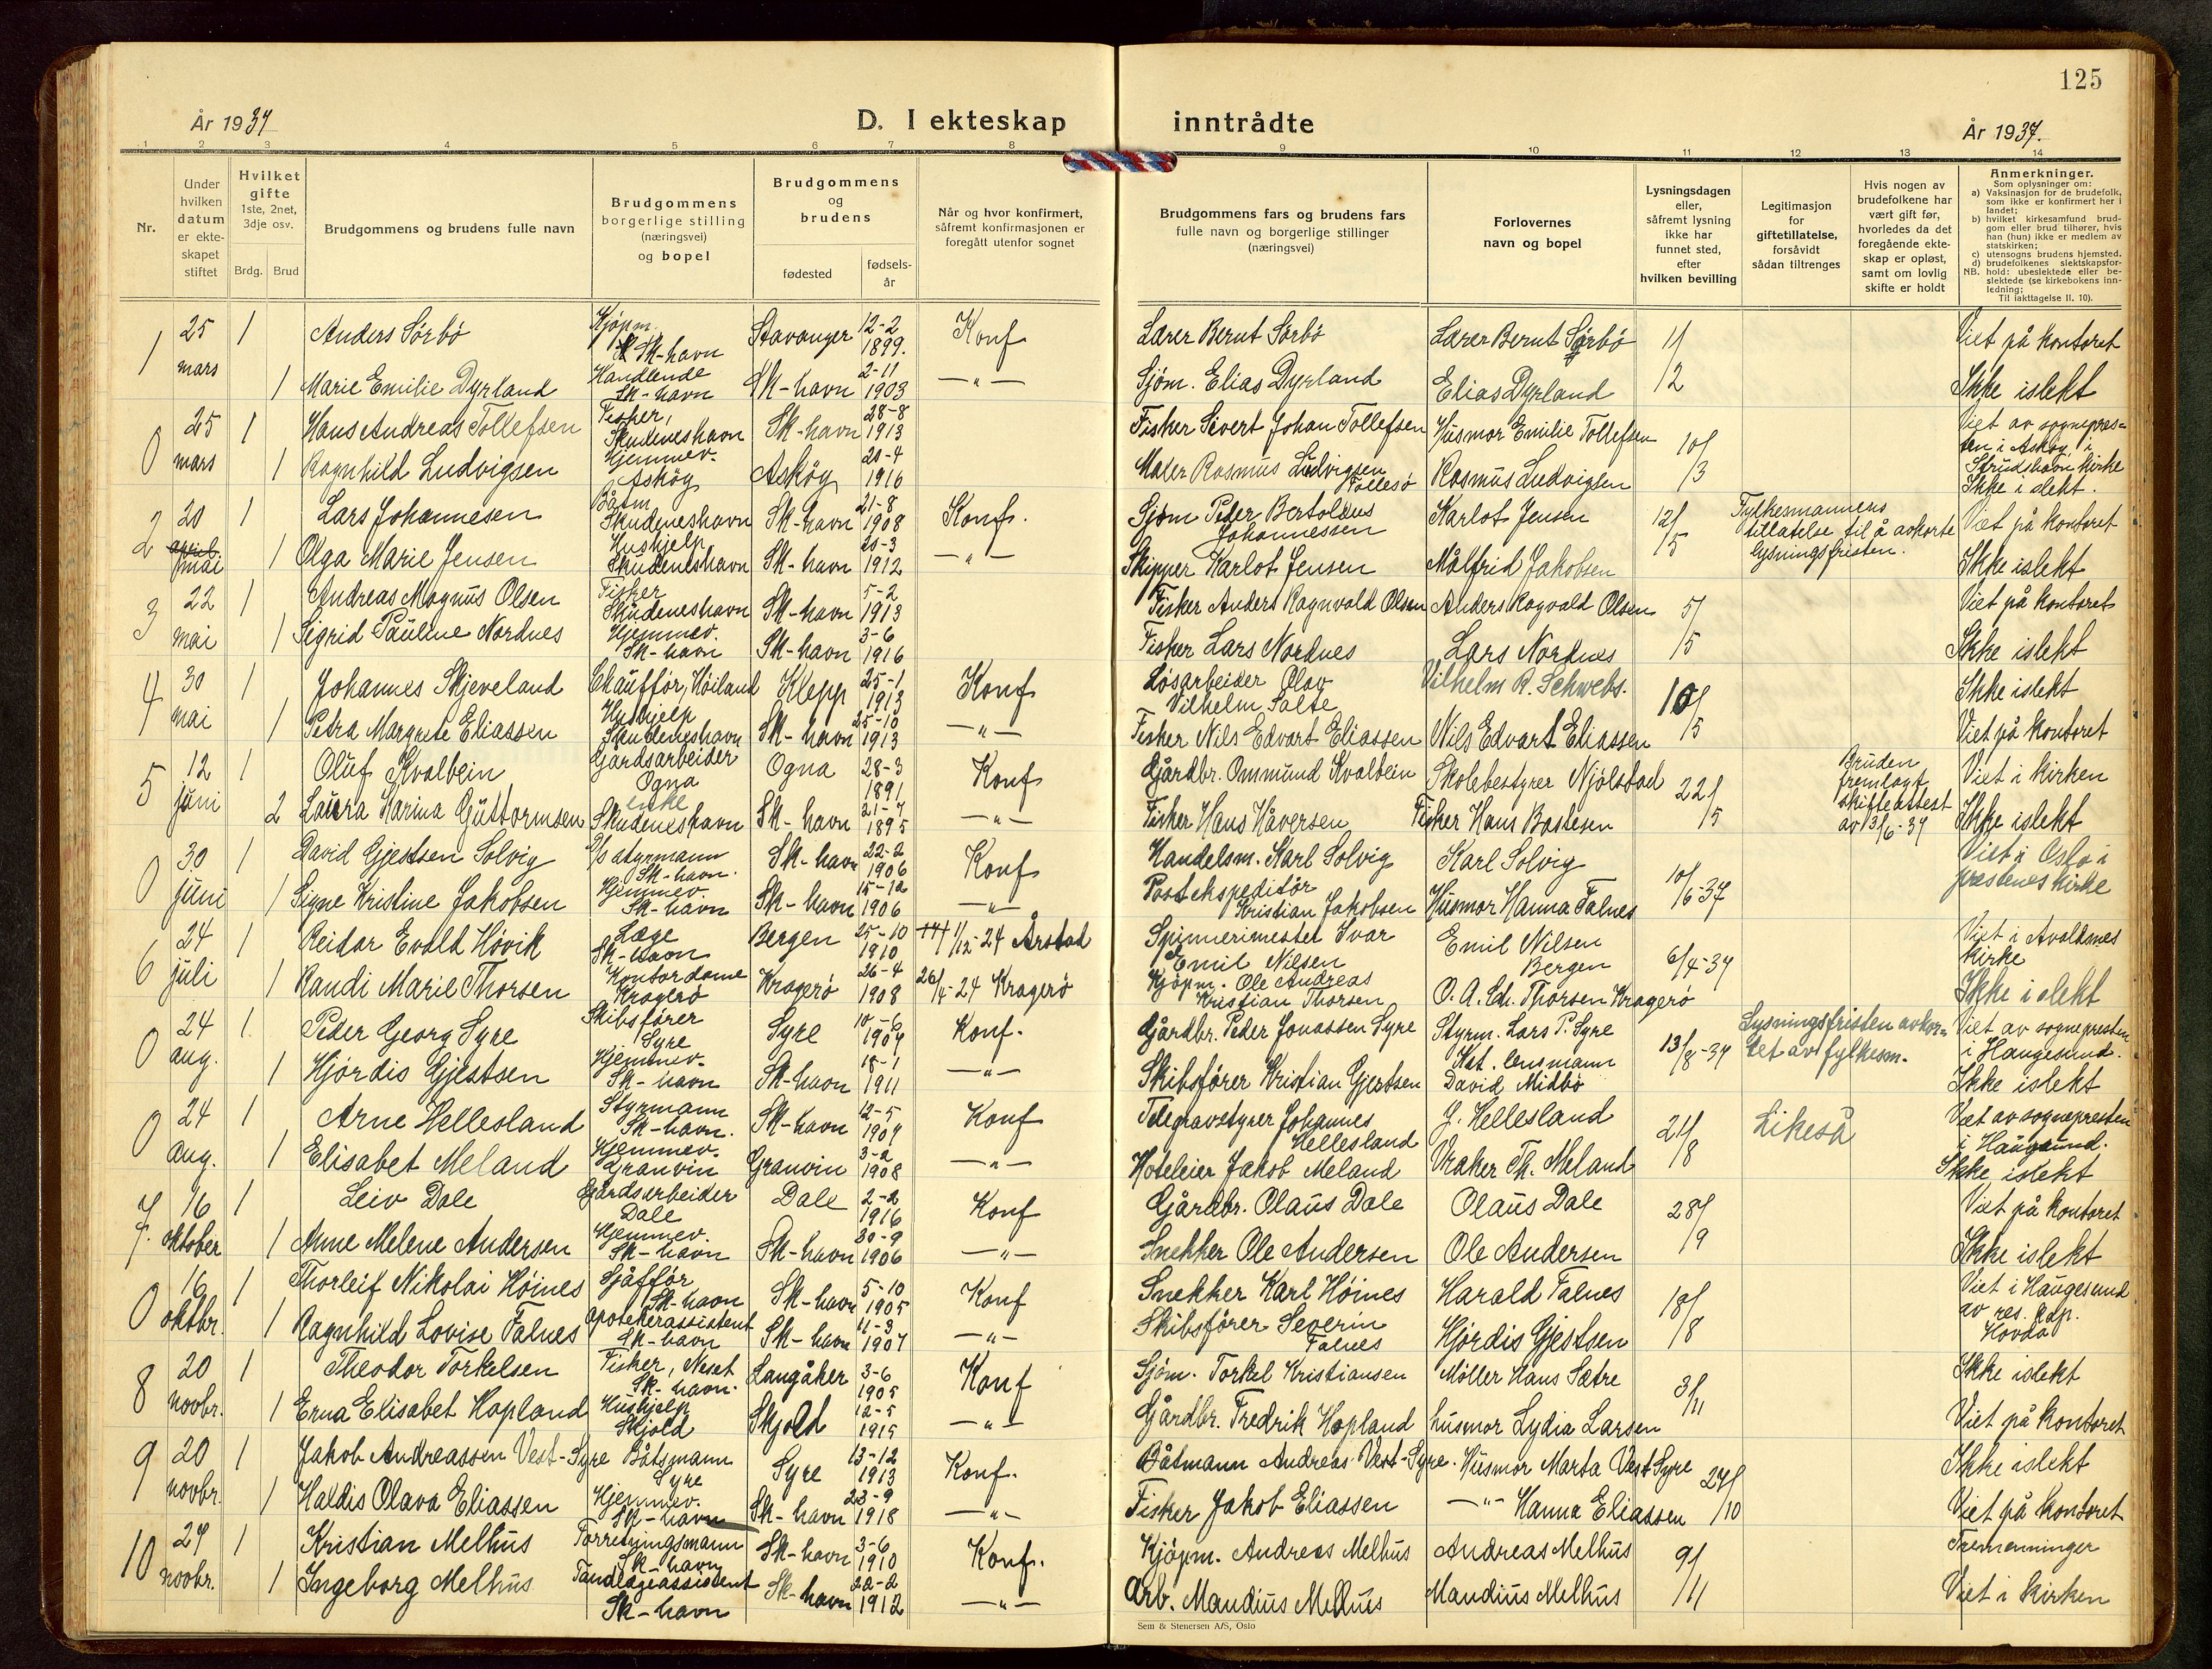 125
År 1937
D. I ekteskap inntrådte
År 1937.
1 2 3 4 5 6 7 8 9 10 11 12 13 14
Nr.
Under hvilken datum er ekteskapet stiftet
Hvilket gifte 1ste, 2net, 3dje osv.
Brdg. Brud
Brudgommens og brudens fulle navn
Brudgommens borgerlige stilling (næringsvei) og bopel
Brudgommens og brudens
fødested
fødselsår
Når og hvor konfirmert, såfremt konfirmasjonen er foregått utenfor sognet
Brudgommens fars og brudens fars fulle navn og borgerlige stillinger (næringsvei)
Forlovernes navn og bopel
Lysningsdagen eller, såfremt lysning ikke har funnet sted, efter hvilken bevilling
Legitimasjon for giftetillatelse, forsåvidt sådan tiltrenges
Hvis nogen av brudefolkene har vært gift før, hvorledes da det foregående ekteskap er opløst, samt om lovlig skifte er holdt
Anmerkninger.
Som oplysninger om:
a) Vaksinasjon for de brudefolk, som ikke er konfirmert her i landet;
b) hvilket kirkesamfund brudgom eller brud tilhører, hvis han (hun) ikke er medlem av statskirken;
c) utensogns brudens hjemsted.
d) brudefolkenes slektskapsforhold: ubeslektede eller beslektede (se kirkebokens innledning;
NB. Til iakttagelse II. 10).
1 25 mars 1 Anders Sørbø Kjøpm. Sk-havn Stavanger 12-2 1899. Konf Lærer Bernt Sørbø Lærer Bernt Sørbø 1/2 Viet på kontoret
1 Marie Emilie Dyrland Handlende Sk-havn Sk-havn 2-11 1903 —"— Sjøm. Elias Dyrland Elias Dyrland Ikke i slekt
0 25 mars 1 Hans Andreas Tollefsen Fisker, Skudeneshavn Sk-havn 28-8 1913 Fisker Sivert Johan Tollefsen Husmor Emilie Tollefsen 10/3 Viet av sognepresten i Askøy, i Strudshavn kirke
1 Ragnhild Ludvigsen Hjemmev. Askøy Askøy 20-4 1916 Maler Rasmus Ludvigsen Follesø Rasmus Ludvigsen Ikke i slekt.
2 20 april mai 1 Lars Johannesen Båtsm Skudeneshavn Sk-havn 21-8 1908 Konf. Sjøm Peder Bertoldus Johannessen Karlot Jensen 12/5 Fylkesmannens tillatelse til å avkorte lysningsfristen. Viet på kontoret
1 Olga Marie Jensen Hushjelp Skudeneshavn Sk-havn 20-3 1912 —"— Skipper Karlot Jensen Målfrid Jakobsen Ikke i slekt
3 22 mai 1 Andreas Magnus Olsen Fisker Skudeneshavn Sk-havn 5-2 1913 Fisker Anders Ragnvald Olsen Anders Ragvald Olsen 5/5 Viet på kontoret
1 Sigrid Pauline Nordnes Hjemmev. Sk-havn Sk-havn 3-6 1916 Fisker Lars Nordnes Lars Nordnes Ikke i slekt
4 30 mai 1 Johannes Skjeveland Chauffør, Høiland Klepp 25-1 1913 Konf Løsarbeider Olav Vilhelm Salte Vilhelm R. Schwebs. 10/5 Ikke i slekt
1 Petra Margrete Eliassen Hushjelp Skudeneshavn Sk-havn 25-10 1913 —"— Fisker Nils Edvart Eliassen Nils Edvart Eliassen Viet på kontoret
5 12 juni 1 Oluf Kvalbein Gårdsarbeider Ogna Ogna 28-3 1891 Konf Gårdbr. Ommund Kvalbein Skolebestyrer Njølstad 22/5 Bruden fremlagt skifteattest av 13/6-37 Viet i kirken
2 Laura Karina Guttormsen enke Skudeneshavn Sk-havn 21-7 1895 —"— Fisker Hans Håversen Fisker Hans Bastesen Ikke i slekt
0 30 juni 1 David Gjestsen Solvig D/s styrmann Sk-havn. Sk-havn 22-2 1906 Konf Handelsm. Karl Solvig Karl Solvig 10/6-37 Viet i Oslo i prestenes kirke
1 Signe Kristine Jakobsen Hjemmev. Sk-havn Sk-havn 15-12 1906 —"— Postekspeditør Kristian Jakobsen Husmor Hanna Falnes
6 24 juli 1 Reidar Evald Høvik Læge Sk-havn Bergen 25-10 1910 1/12-24 Årstad Spinnerimester Ivar Emil Nilsen Emil Nilsen Bergen 6/4-37 Viet i Avaldsnes kirke
1 Randi Marie Thorsen Kontordame Kragerø Kragerø 26-4 1908 26/4-24 Kragerø Kjøpm. Ole Andreas Kristian Thorsen O. A. Chr. Thorsen Kragerø Ikke i slekt
0 24 aug. 1. Peder Georg Syre Skibsfører Syre Syre 10-6 1907 Konf. Gårdbr. Peder Jonassen Syre Styrm. Lars P. Syre 13/8-37 Lysningsfristen avkortet av fylkesm. Viet av sognepresten i Haugesund.
1 Hjørdis Gjestsen Hjemmev. Sk-havn Sk-havn 18-1 1911 —"— Skibsfører Kristian Gjestsen Kst. lensmann David Midbø Ikke i slekt
0 24 aug. 1 Arne Hellesland Styrmann Sk-havn. Sk-havn 12-5 1907 Konf Telegravstyrer Johannes Hellesland J. Hellesland 21/8 Likeså Viet av sognepresten i Haugesund.
1 Elisabet Meland Hjemmev. Granvin Granvin 3-2 1908 —"— Hoteleier Jakob Meland Vraker Th. Meland Ikke i slekt
7. 16 oktober 1 Leiv Dale Gårdsarbeider Dale Dale 2-2 1916 Konf Gårdbr. Olaus Dale Olaus Dale 28/9 Viet på kontoret
1 Anne Melene Andersen Hjemmev. Sk-havn Sk-havn 30-9 1906 —"— Snekker Ole Andersen Ole Andersen Ikke i slekt
0 16 oktbr. 1 Thorleif Nikolai Høines Sjåffør Sk-havn Sk-havn 5-10 1905 Konf Snekker Karl Høines Harald Falnes 18/8 Viet i Haugesund av res. kap. Hovda
1 Ragnhild Lovise Falnes Apotekerassistent Sk-havn Sk-havn 11-3 1907 —"— Skibsfører Severin Falnes Hjørdis Gjestsen
8 20 novbr. 1 Theodor Torkelsen Fisker, Neset Sk-havn. Langåker 3-6 1905 Konf Sjøm. Torkel Kristiansen Møller Hans Sætre 3/11 Ikke i slekt
1 Erna Elisabet Hopland Hushjelp Skjold Skjold 12-5 1915 —"— Gårdbr. Fredrik Hopland husmor Lydia Larsen Viet på kontoret
9 20 novbr. 1 Jakob Andreassen Vest-Syre Båtsmann Syre Syre 13-12 1913 Konf. Båtmann Andreas Vest-Syre. Husmor Marta Vest Syre 27/10 Ikke i slekt
1 Haldis Olava Eliassen Hjemmev. Sk-havn Sk-havn 23-9 1918 —"— Fisker Jakob Eliassen —"— Hanna Eliassen Viet på kontoret
10 27 novbr. 1 Kristian Melhus Forretningsmann Sk-havn Sk-havn 3-6 1910 Konf. Kjøpm. Andreas Melhus Andreas Melhus 9/11 Tremenninger
1 Ingeborg Melhus Tandlægeassistent Sk-havn Sk-havn 22-2 1912 —"— Arb. Mandius Melhus Mandius Melhus Viet i kirken
Sem & Stenersen A/S, Oslo